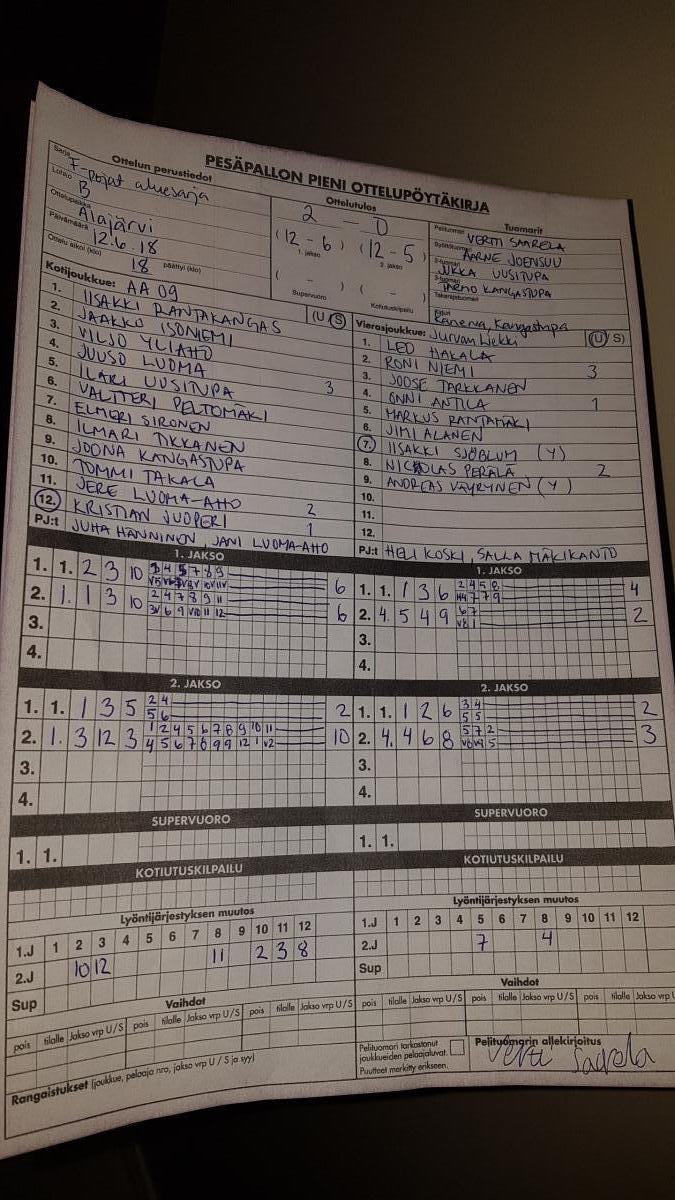 PESÄPALLON PIENI OTTELUPÖYTÄKIRJA
Ottelun perustiedot
Sarja
F-pojat aluesarja
Lohko
B
Ottelupaikka
Alajärvi
Päivämäärä
12.6.18
Ottelu alkoi (klo) 18 päättyi (klo)
Ottelutulos
2 — 0
(12 - 6) (12 - 5)
1. jakso 2. jakso
( - ) ( - )
Supervuoro Kotiutuskilpailu
Tuomarit
Pelituomari VERTTI SAARELA
AARNE JOENSUU
JUKKA UUSITUPA
TARMO KANGASTUPA
Takarajatuomari
Kirjuri
Kanerva, Kangastupa
Kotijoukkue: AA 09 (U S)
1. IISAKKI RANTAKANGAS
2. JAAKKO ISONIEMI
3. VILJO YLIAHO
4. JUUSO LUOMA
5. ILARI UUSITUPA 3
6. VALTTERI PELTOMÄKI
7. ELMERI SIRONEN
8. ILMARI TIKKANEN
9. JOONA KANGASTUPA
10. TOMMI TAKALA
11. JERE LUOMA-AHO 2
12. KRISTIAN JUOPERI 1
PJ:t JUHA HÄNNINEN, JANI LUOMA-AHO
Vierasjoukkue: Jurvan Liekki (U S)
1. LEO HAKALA
2. RONI NIEMI 3
3. JOOSE TARKKANEN
4. ONNI ANTILA 1
5. MARKUS RANTAMÄKI
6. JIMI ALANEN
7. IISAKKI SJÖBLUM (Y)
8. NICKOLAS PERÄLÄ 2
9. ANDREAS VÄYRYNEN (Y)
10.
11.
12.
PJ:t HELI KOSKI, SALLA MÄKIKANTO
1. JAKSO
1. 1. 2 3 10 3 4 5 7 8 9 6
2. 1. 1 3 10 2 4 7 8 9 11 6
3.
4.
1. JAKSO
1. 1. 1 3 6 2 4 5 8 4
2. 4. 5 4 9 6 7 2
3.
4.
2. JAKSO
1. 1. 1 3 5 2 4 2
5 6
2. 1. 3 12 3 1 2 4 5 6 7 8 9 10 11 10
4 5 6 7 8 9 9 12 1 V2
3.
4.
2. JAKSO
1. 1. 1 2 6 3 4 2
5 5
2. 4. 4 6 8 5 7 2 3
3.
4.
SUPERVUORO
1. 1.
SUPERVUORO
1. 1.
KOTIUTUSKILPAILU
KOTIUTUSKILPAILU
Lyöntijärjestyksen muutos
1.J 1 2 3 4 5 6 7 8 9 10 11 12
2.J 10 12 11 2 3 8
Sup
Lyöntijärjestyksen muutos
1.J 1 2 3 4 5 6 7 8 9 10 11 12
2.J 7 4
Sup
Vaihdot
pois tilalle Jakso vrp U/S pois tilalle Jakso vrp U/S pois tilalle Jakso vrp U/S
Vaihdot
pois tilalle Jakso vrp U/S pois tilalle Jakso vrp U/S pois tilalle Jakso vrp U
Rangaistukset (joukkue, pelaaja nro, jakso vrp U / S ja syy)
Pelituomari tarkastanut
joukkueiden pelaajaluvat.
Puutteet merkitty erikseen.
Pelituomarin allekirjoitus
Vertti Saarela